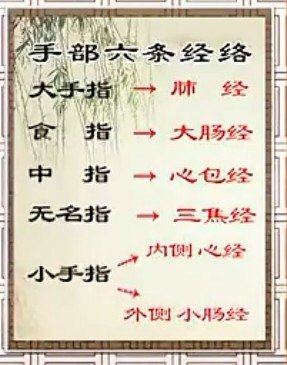 手部六条经络
大手指 → 肺 经
食 指 → 大肠经
中 指 → 心包经
无名指 → 三焦经
小手指 → 内侧 心经
→ 外侧 小肠经